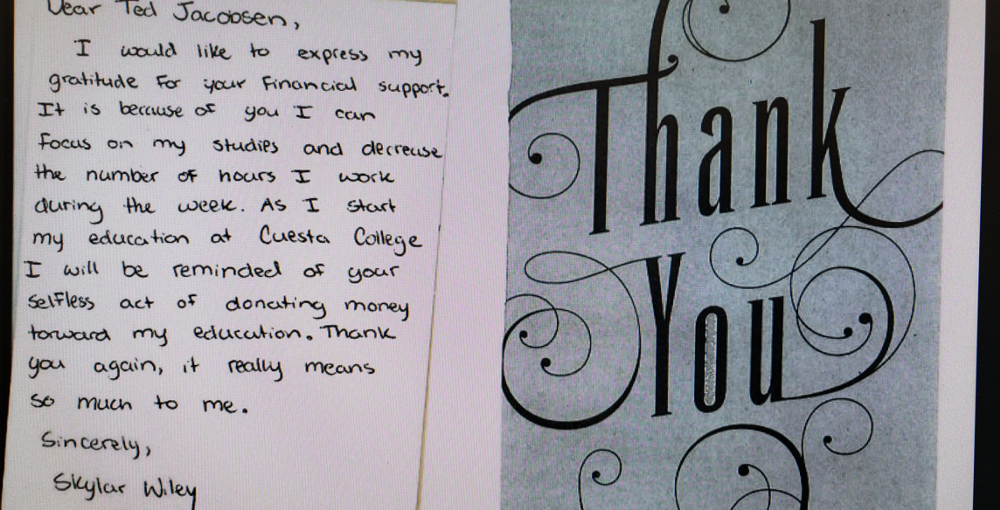 Dear Ted Jacobsen,
I would like to express my
gratitude for your financial support.
It is because of you I can
focus on my studies and decrease
the number of hours I work
during the week. As I start
my education at Cuesta College
I will be reminded of your
selfless act of donating money
torward my education. Thank
you again, it really means
so much to me.
Sincerely,
Skylar Wiley
Thank
You